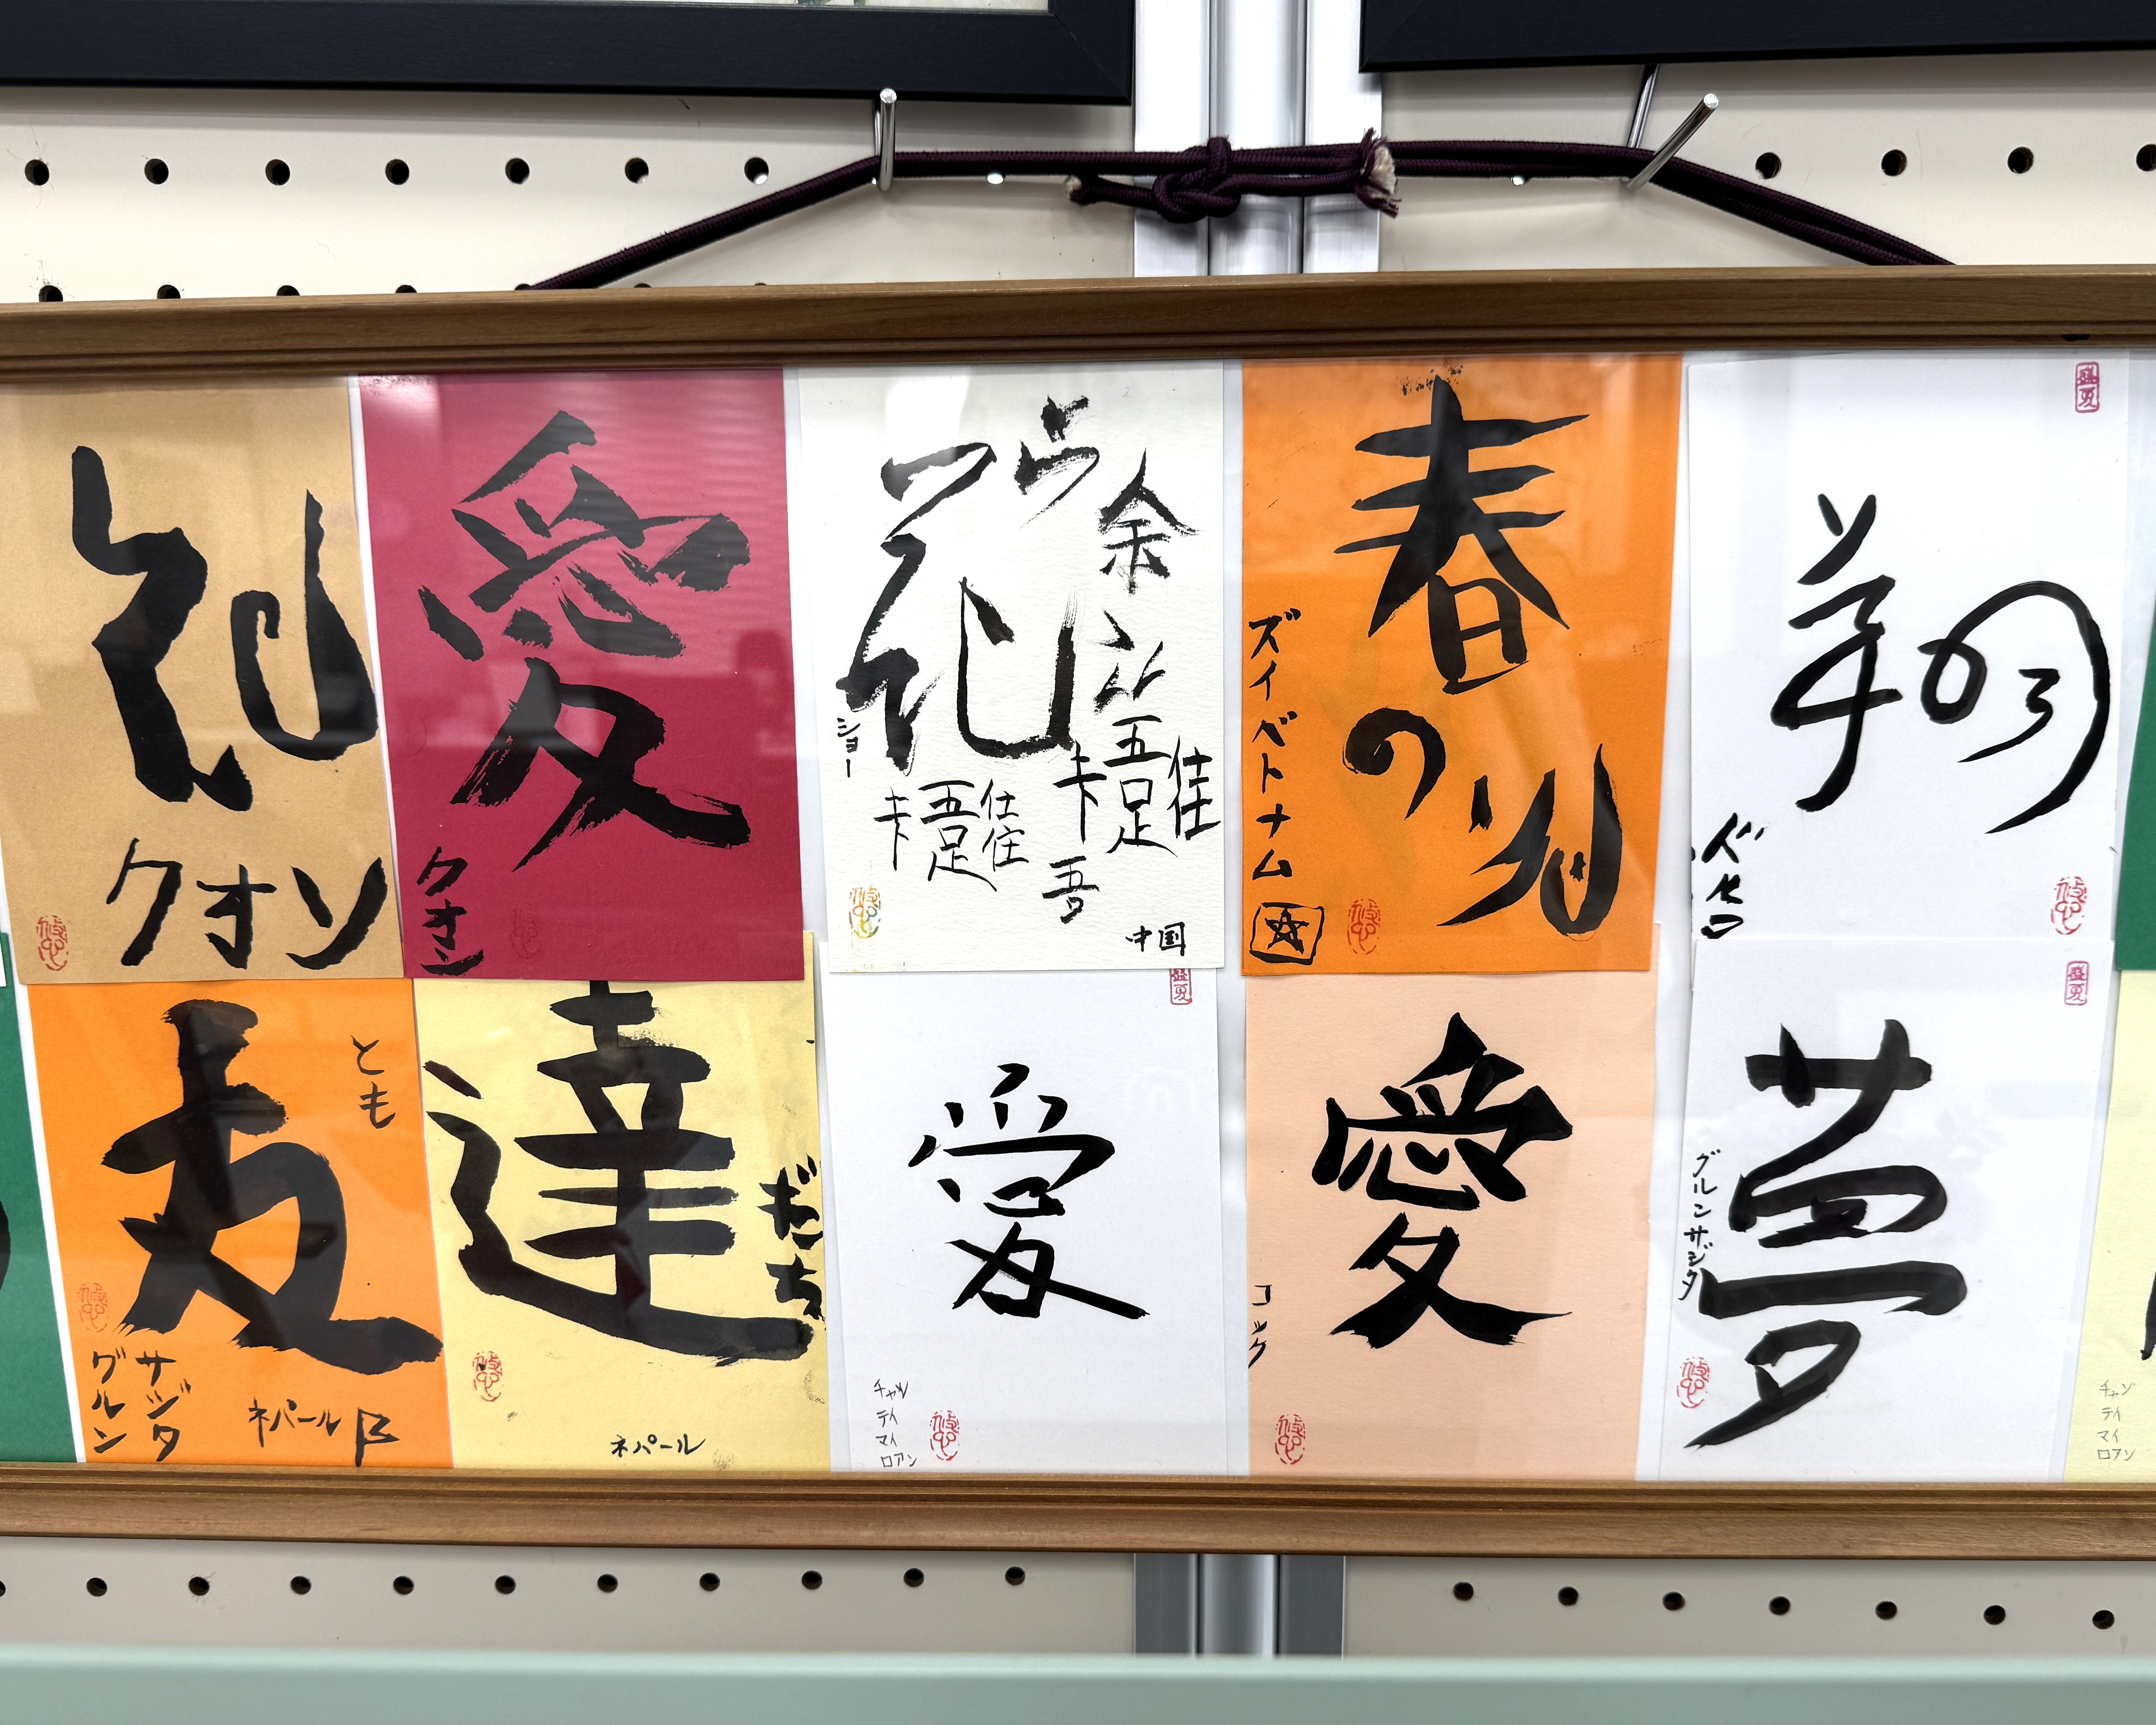 クオン
愛
クオン
花
余
ショー
中国
春の
ズイベトナム
翔
友
とも
サジタ
グルン
ネパール
達
だち
ネパール
愛
チャン
テイ
マイ
ロアン
愛
コック
夢
グルンサジタ
チャン
テイ
マイ
ロアン
盛夏
盛夏
盛夏